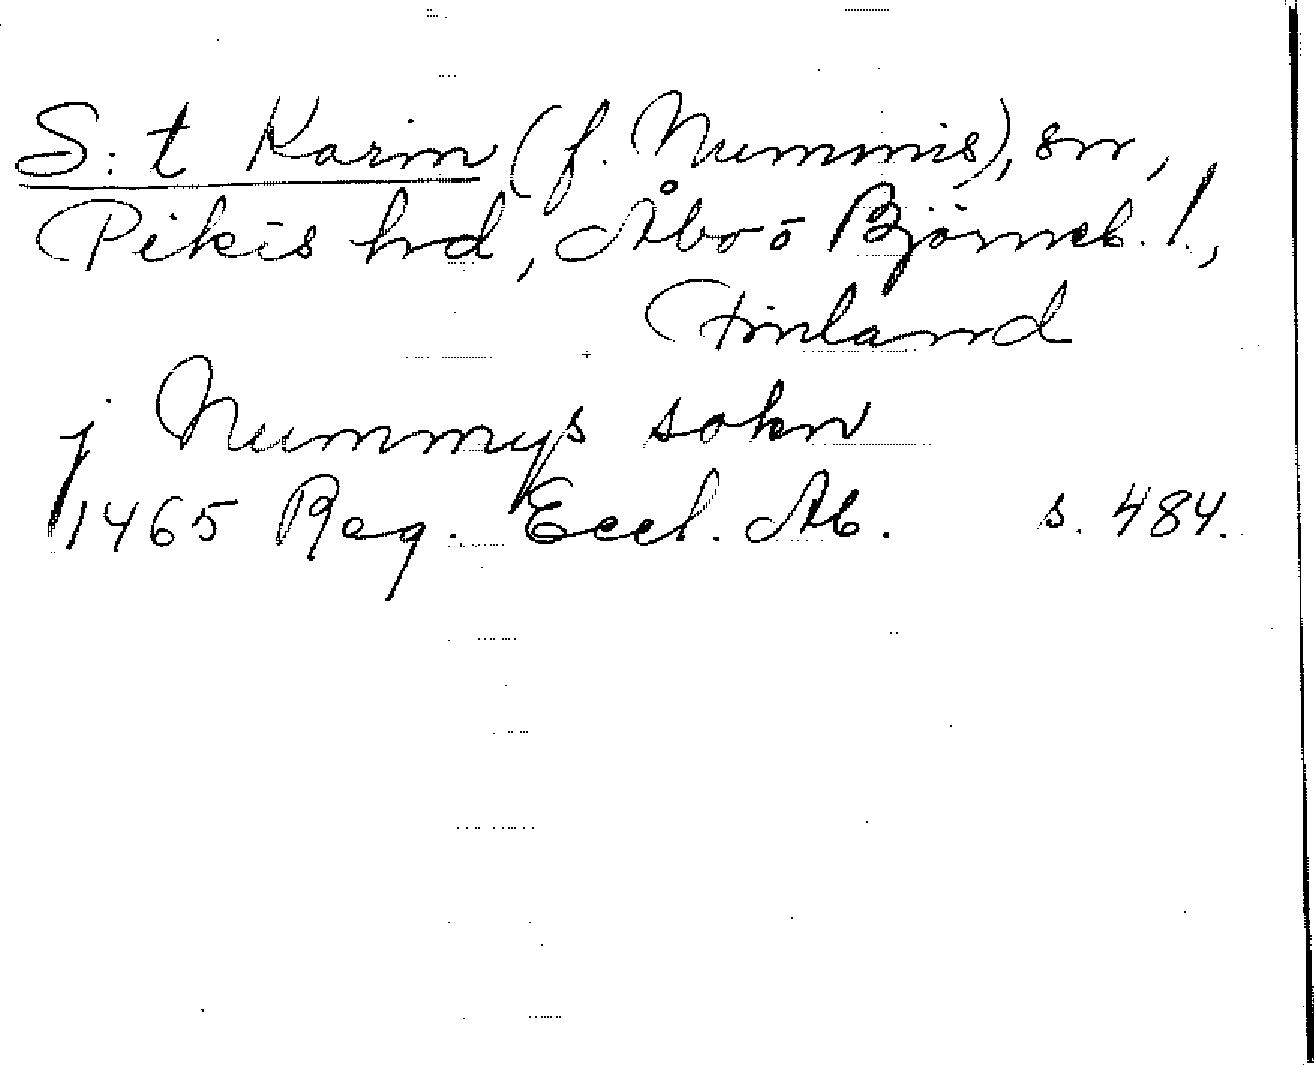 S:t Karin (f. Nummis), sn,
Pikis hrd, Åbo o Björneb. l.,
Finland
j Nummys sokn
1465 Reg. Eccl. Ab. s. 484.